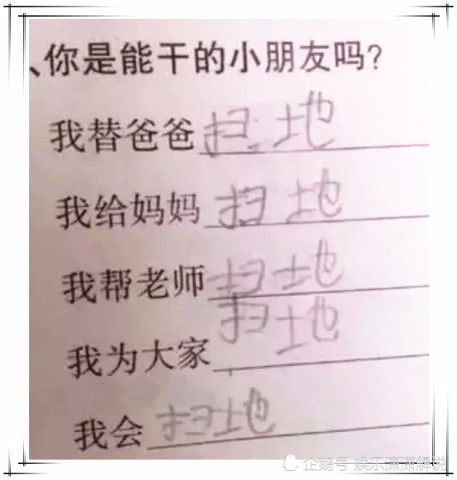 、你是能干的小朋友吗?
我替爸爸扫地
我给妈妈扫地
我帮老师扫地
我为大家扫地
我会扫地
企鹅号 娱乐潇潇解说